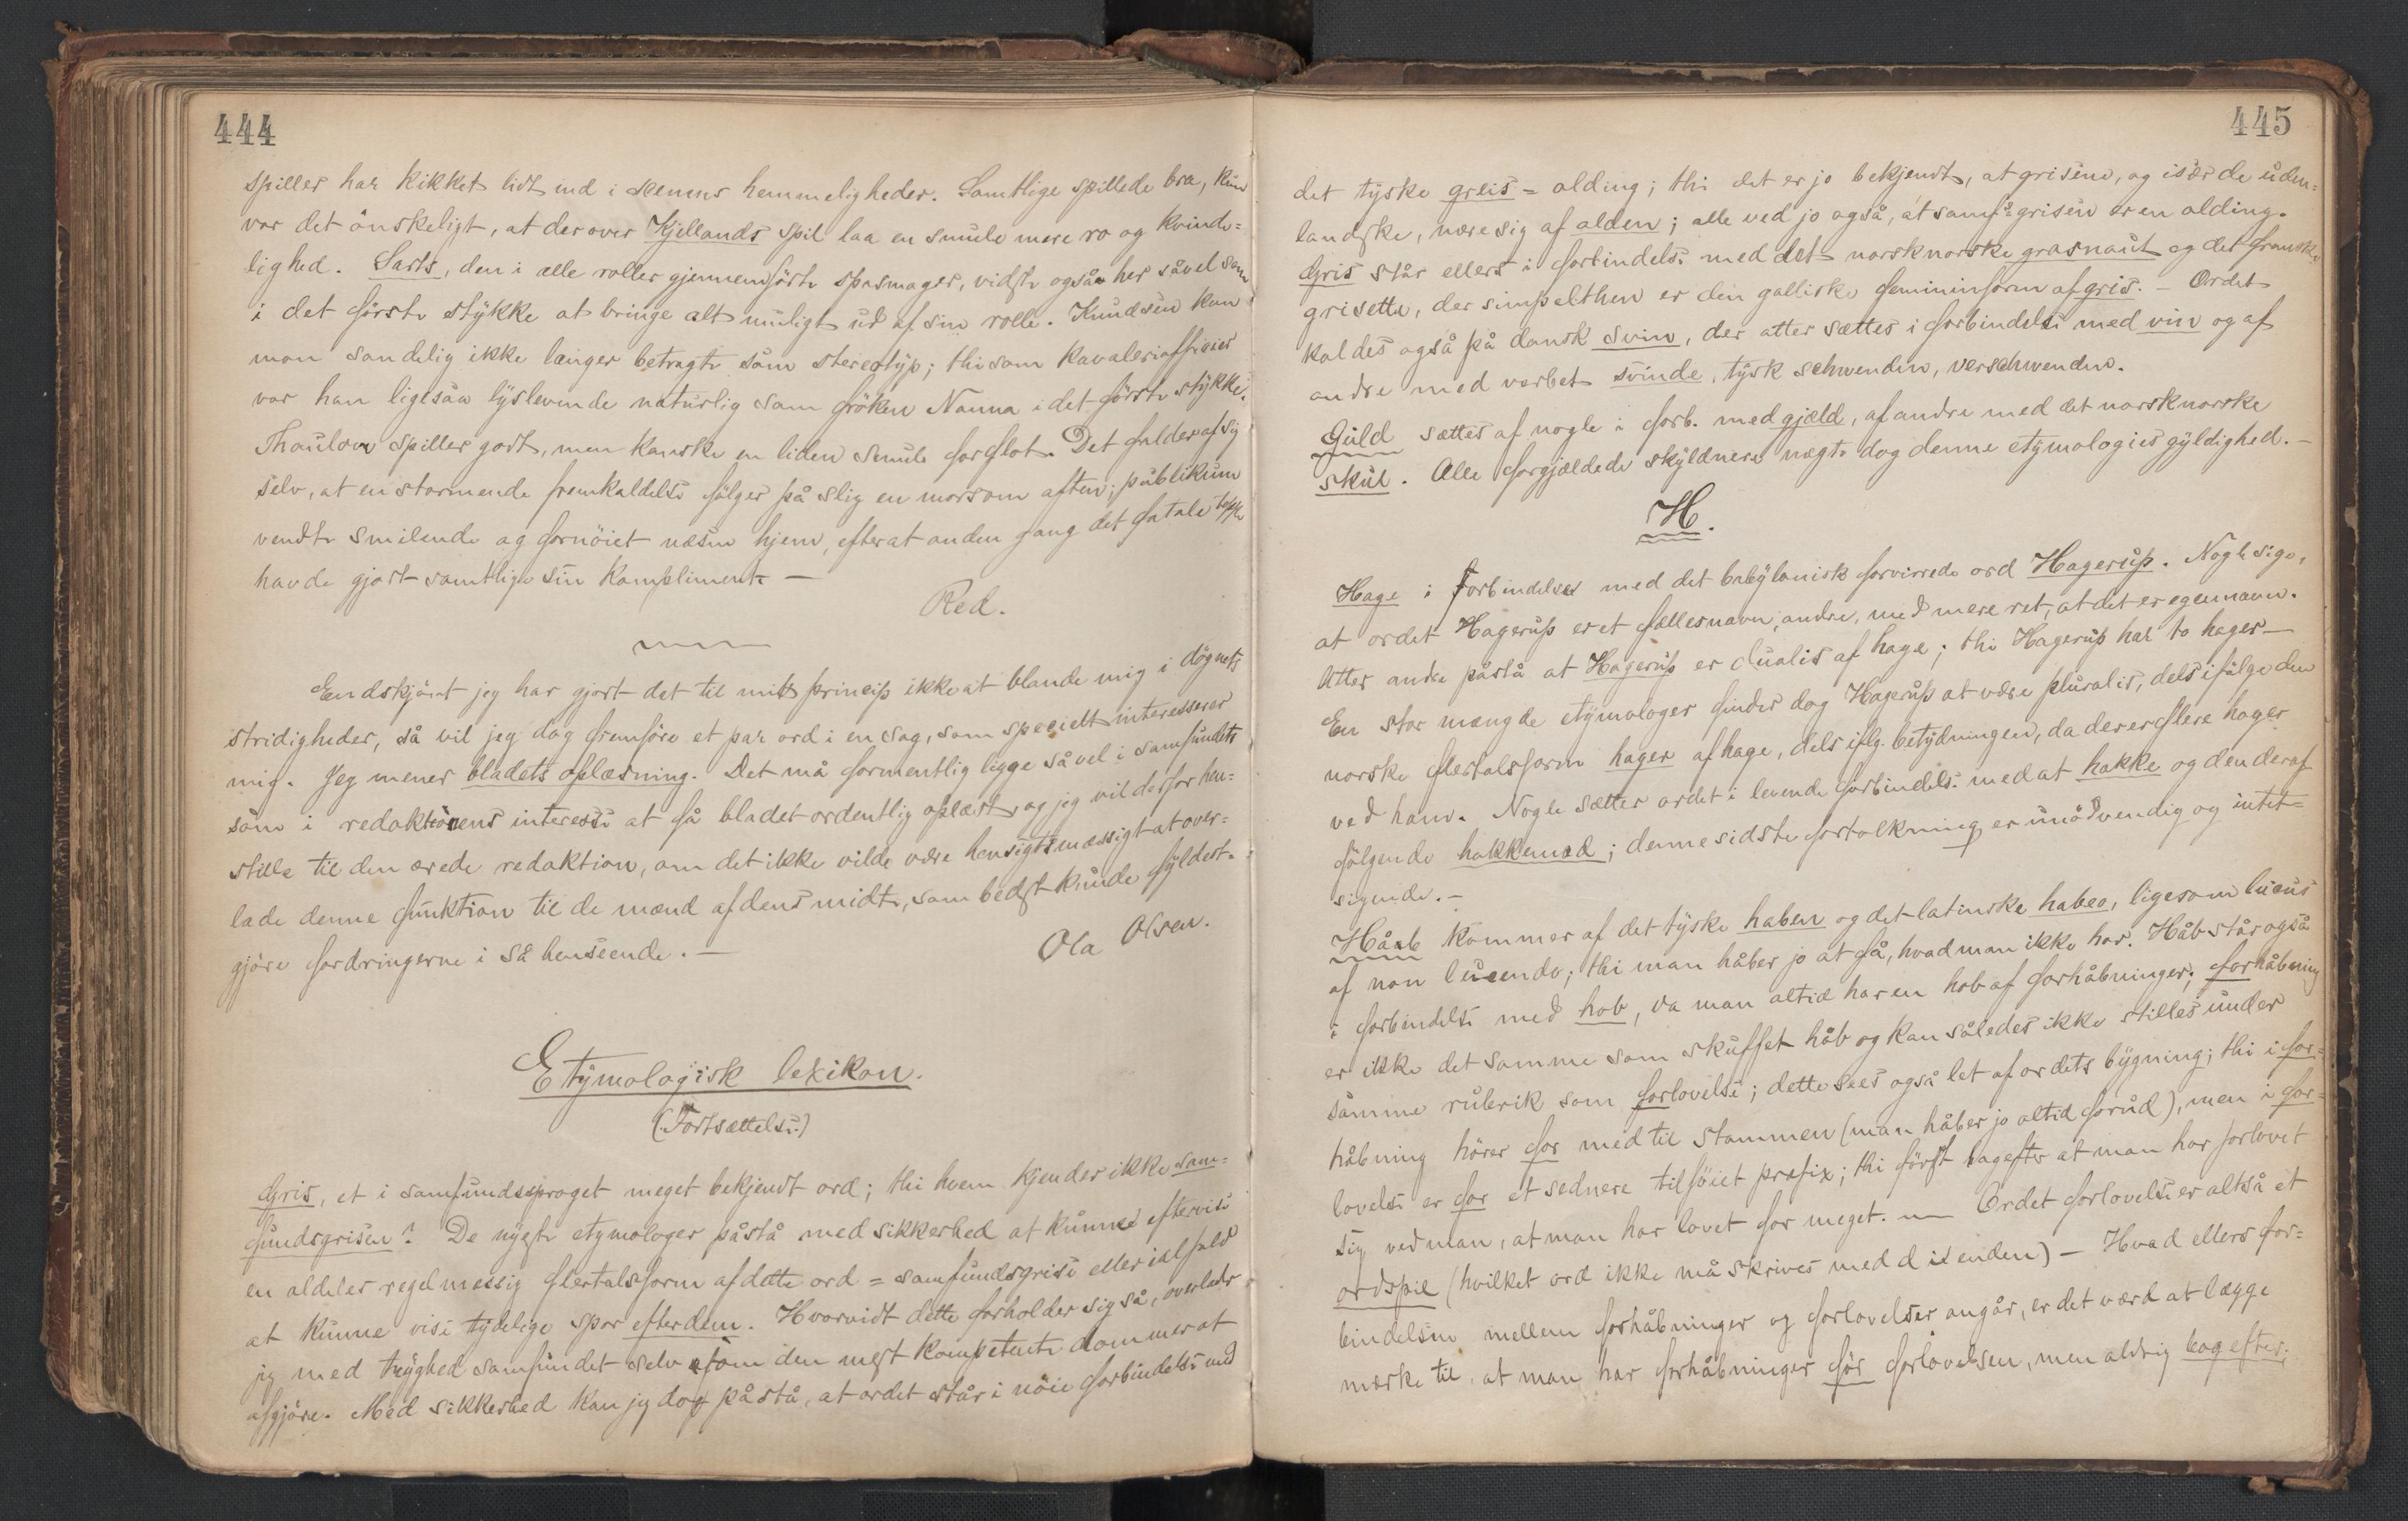 444
spiller har kikket lidt ind i scenens hemmeligheder. Samtlige spillede bra, kun
var det önskeligt, at der over Kjellands spil laa en smule mere ro og kvinde=
lighed. Sarts, den i alle roller gjennemførte spasmager, vidste også her såvel som
i det förste stykke at bringe alt muligt ud af sin rolle. Knudsen kan
man sandelig ikke længer betragte som stereotyp; thi som kavaleriofficier
var han ligesaa lyslevende naturlig som fröken Nanna i det förste stykke.
Thaulow spiller godt, men kanske en liden smule forflot. Det falder af sig
selv, at en stormende fremkaldelse fölger på slig en morsom aften; publikum
vendte smilende og fornöiet næsen hjem, efterat anden gang det fatale tæppe
havde gjort samtlige sin kompliment. —
Red.
Endskjönt jeg har gjort det til mitt princip ikke at blande mig i dögnets
stridigheder, så vil jeg dog fremföre et par ord i en sag, som specielt interesserer
mig. Jeg mener bladets oplæsning. Det må formentlig ligge så vel i samfundets
som i redaktionens interesse at få bladet ordentlig oplæst, og jeg vil derfor hen=
stille til den ærede redaktion, om det ikke vilde være hensigtsmæssigt at over=
lade denne funktion til de mænd af dens midte, som bedst kunde fyldest=
gjöre fordringerne i så henseende. —
Ola Olsen.
Etymologisk lexikon.
(Fortsættelse.)
Gris, et i samfundssproget meget bekjendt ord; thi hvem kjender ikke sam=
fundsgrisen? De nyeste etymologer påstå med sikkerhed at kunne eftervise
en aldeles regelmæssig flertalsform af dette ord = samfundsgrise eller ialfald
at kunne vise tydelige spor efter dem. Hvorvidt dette forholder sig så, overlader
jeg med tryghed samfundet selv som den mest kompetente dommer at
afgjöre. Med sikkerhed kan jeg dog påstå, at ordet står i nöie forbindelse med
445
det tyske greis = olding; thi det er jo bekjendt, at grisene, og især de uden=
landske, nære sig af olden; alle ved jo også, at samf⸗grisen er en olding.
Gris står ellers i forbindelse med det norsknorske grasnaut og det franske
grisette, der simpelthen er den galliske femininform af gris. — Ordet
kaldes også på dansk svin, der atter sættes i forbindelse med vin og af
andre med verbet svinde, tysk schwenden, verschwenden.
Guld sættes af nogle i forb. med gjæld, af andre med det norsknorske
skul. Alle forgjældede skyldnere nægte dog denne etymologies gyldighed. —
H.
Hage i forbindelse med det babylonisk forvirrede ord Hagerup. Nogle sige,
at ordet Hagerup er et fællesnavn, andre, med mere ret, at det er egennavn.
Atter andre påstå at Hagerup er dualis af hage; thi Hagerup har to hager —
En stor mængde etymologer finder dog Hagerup at være pluralis, dels ifölge den
norske flertalsform hager af hage, dels iflg. betydningen, da der er flere hager
ved ham. Nogle sætter ordet i levende forbindelse med at hakke og den deraf
fölgende hakkemad; denne sidste fortolkning er unödvendig og intet=
sigende. —
Håb kommer af det tyske haben og det latinske habeo, ligesom lucus
af non lucendo; thi man håber jo at få, hvad man ikke har. Håb står også
i forbindelse med hob, da man altid har en hob af forhåbninger; forhåbning
er ikke det samme som skuffet håb og kan således ikke stilles under
samme rubrik som forlovelse; dette sees også let af ordets bygning; thi i for=
håbning hører for med til stammen (man håber jo altid forud), men i for=
lovelse er for et sednere tilföiet præfix; thi först bagefter at man har forlovet
sig ved man, at man har lovet for meget. — Ordet forlovelse er altså et
ordspil (hvilket ord ikke må skrives med d i enden) — Hvad ellers for=
bindelsen mellem forhåbninger og forlovelser angår, er det værd at lægge
mærke til, at man har forhåbninger för forlovelsen, men aldrig bagefter;